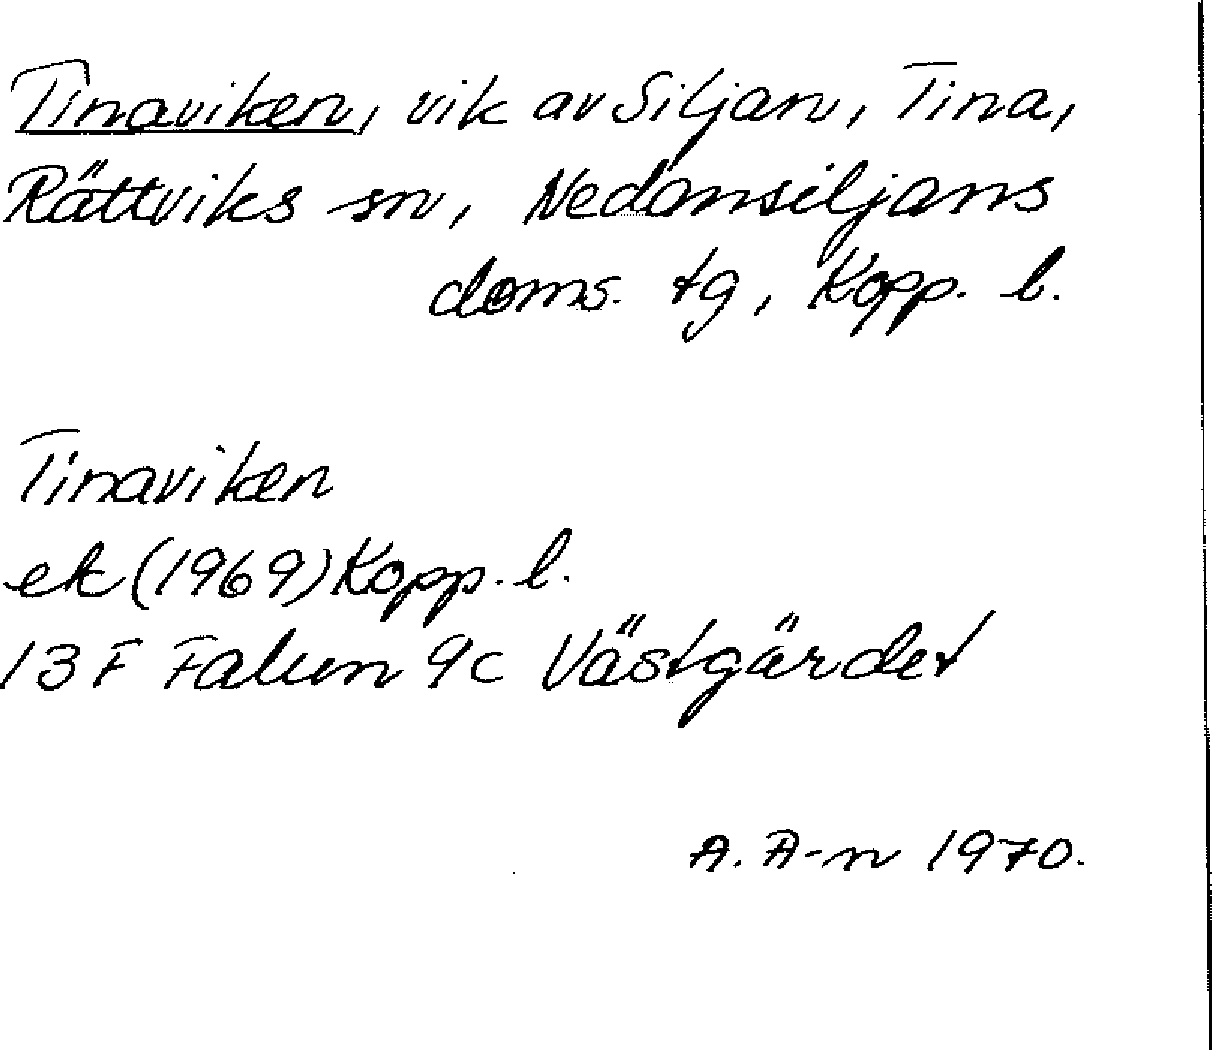 Tinaviken, vik av Siljan, Tina,
Rättviks sn, Nedansiljans
doms. tg, Kopp. l.
Tinaviken
ek (1969) Kopp. l.
13 F Falun 9c Västgärdet
A. A-n 1970.